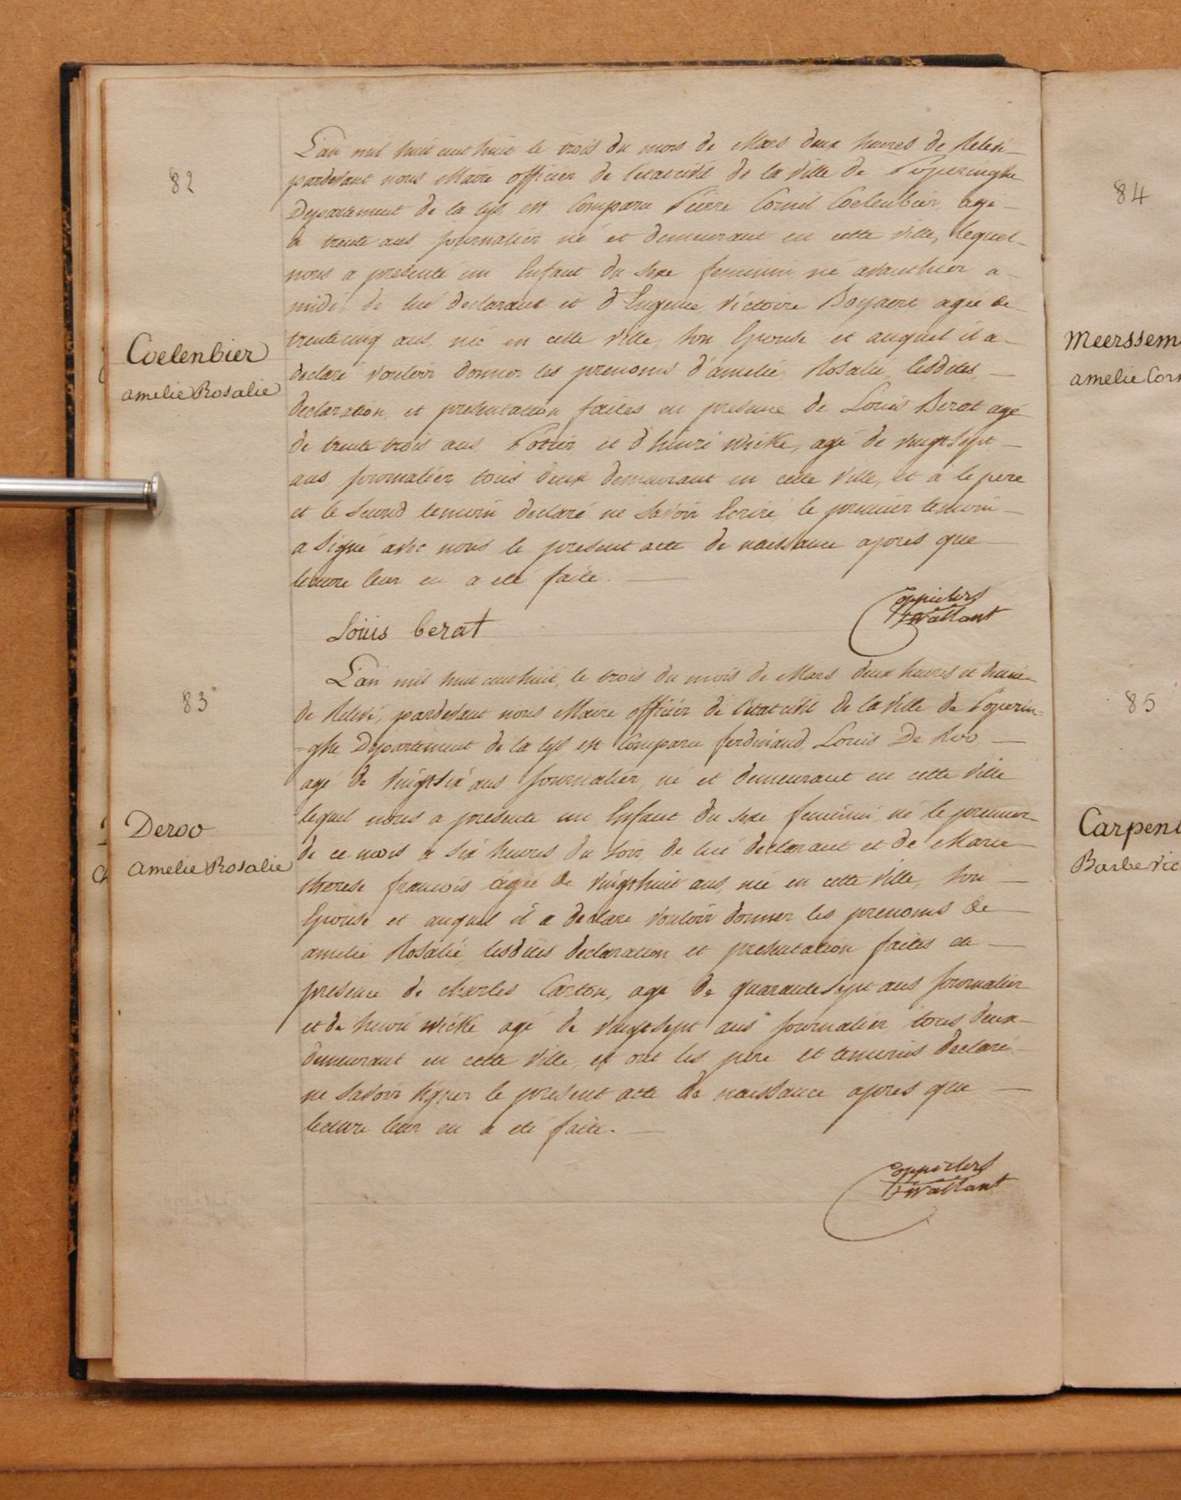 82
Coelenbier
amelie Rosalie
L'an mil huit cent huit le trois du mois de Mars deux heures de Relevé
pardevant nous Maire officier de l'etat civil de la Ville de Poperinghe
Departement de la Lys est Comparu Pierre Cornil Coelenbier, agé
de trente ans journalier né et demeurant en cette Ville, lequel
nous a presenté un Enfant du sexe feminin né avant hier a
midi de lui declarant et d'Eugenie Victoire Boyaert agée de
trente cinq ans, née en cette Ville, son Epouse et auquel il a
declaré vouloir donner les prenoms d'amelie Rosalie, lesdites
declaration et presentation faites en presence de Louis Berat agé
de trente trois ans Potier et d'henri Wicke, agé de vingt sept
ans journalier tous deux demeurant en cette Ville, et a le pere
et le second temoin declaré ne savoir Ecrire, le premier temoin
a Signé avec nous le present acte de naissance apres que
lecture leur en a eté faite.
Louis berat
83
Deroo
Amelie Rosalie
L'an mil huit cent huit, le trois du mois de Mars deux heures et demie
de Relevé, pardevant nous Maire officier de l'etat civil de la Ville de Poperin-
-ghe Departement de la Lys est Comparu ferdinand Louis De Roo
agé de vingt six ans journalier, né et demeurant en cette Ville
lequel nous a presenté un Enfant du sexe feminin né le premier
de ce mois a six heures du soir, de lui declarant et de Marie
therese francois agée de vingt huit ans, née en cette Ville, son
Epouse et auquel il a declaré vouloir donner les prenoms de
amelie Rosalie, lesdites declaration et presentation faites en
presence de charles Carton, agé de quarante sept ans journalier
et de henri Wicke agé de vingt sept ans journalier tous deux
demeurant en cette Ville, et ont les pere et temoins declaré
ne savoir signer le present acte de naissance apres que
lecture leur en a eté faite.
84
Meerssem
amelie Corn
85
Carpent
Barbe Vic